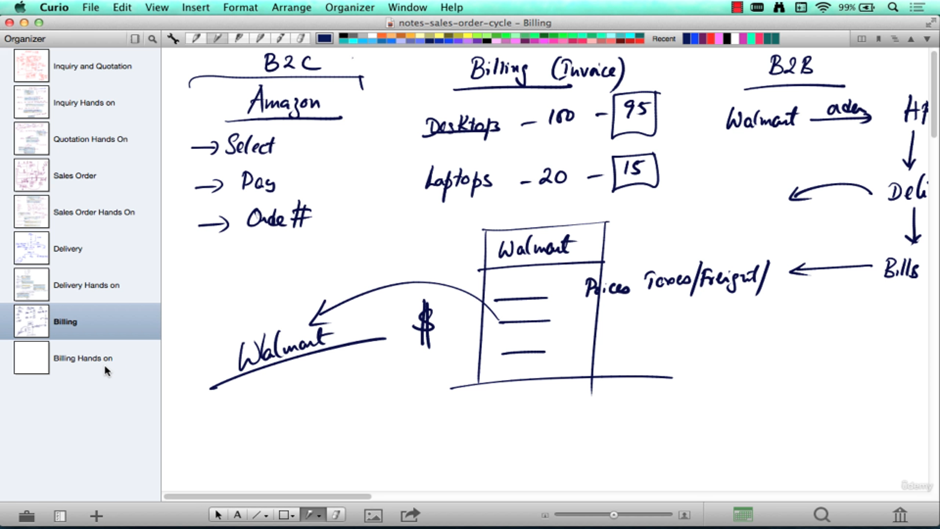 Curio File Edit View Insert Format Arrange Organizer Window Help
99%
notes-sales-order-cycle – Billing
Organizer
Recent
Inquiry and Quotation
Inquiry Hands on
Quotation Hands On
Sales Order
Sales Order Hands On
Delivery
Delivery Hands on
Billing
Billing Hands on
B2C
Amazon
→ Select
→ Pay
→ Order #
Billing (Invoice)
Desktops - 100 - 95
Laptops - 20 - 15
Walmart
Prices Taxes/Freight/
$
Walmart
B2B
Walmart order
Deli
Bills
A
Udemy